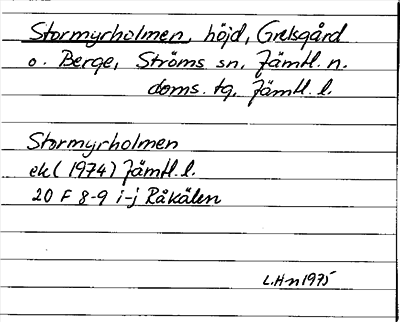 Stormyrholmen, höjd, Grelsgård
o. Berge, Ströms sn, Jämtl. n.
doms. tg, Jämtl. l.
Stormyrholmen
ek (1974) Jämtl. l.
20 F 8-9 i-j Råkälen
L.Hn 1975